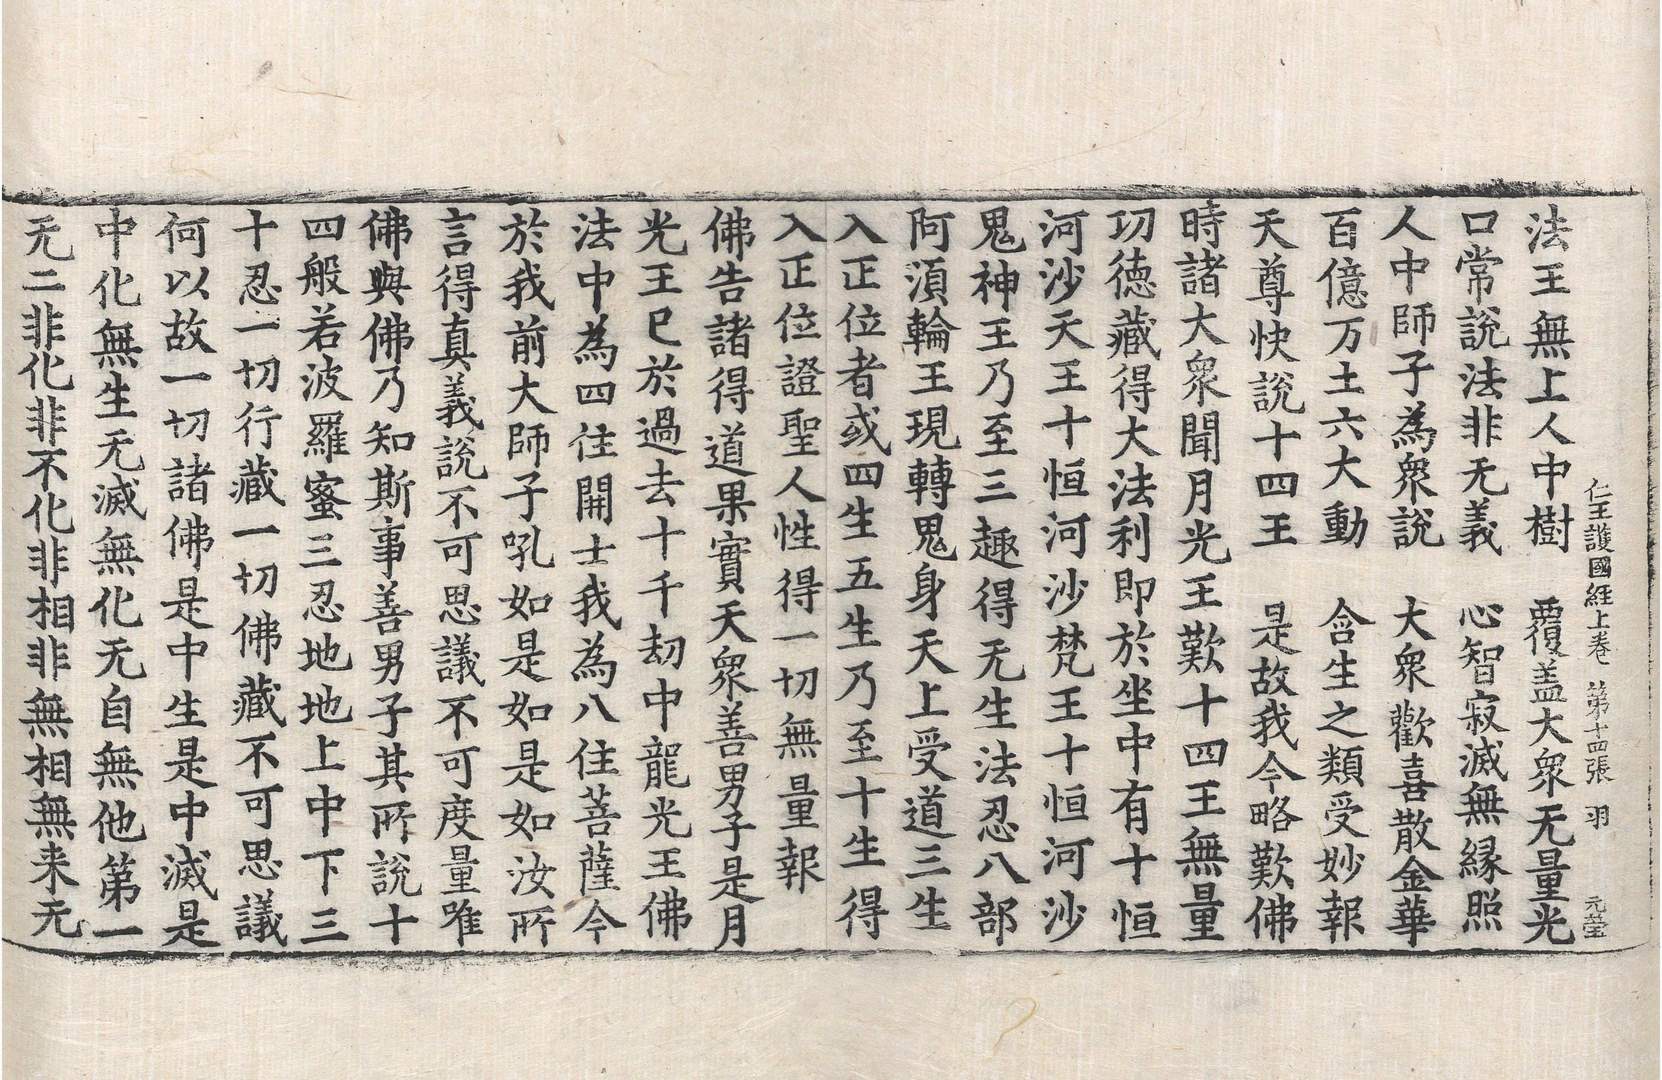 仁王護國経上卷　第十四張　羽　元瑩
法王無上人中樹　覆盖大衆无量光
口常說法非无義　心智寂滅無縁照
人中師子為衆說　大衆歡喜散金華
百億万土六大動　含生之類受妙報
天尊快說十四王　是故我今略歎佛
時諸大衆聞月光王歎十四王無量
功德藏得大法利即於坐中有十恒
河沙天王十恒河沙梵王十恒河沙
鬼神王乃至三趣得无生法忍八部
阿湏輪王現轉鬼身天上受道三生
入正位者或四生五生乃至十生得
入正位證聖人性得一切無量報
佛告諸得道果實天衆善男子是月
光王已於過去十千劫中龍光王佛
法中為四住開士我為八住菩薩今
於我前大師子吼如是如是如汝所
言得真義說不可思議不可度量唯
佛與佛乃知斯事善男子其所說十
四般若波羅蜜三忍地地上中下三
十忍一切行藏一切佛藏不可思議
何以故一切諸佛是中生是中滅是
中化無生无滅無化无自無他第一
无二非化非不化非相非無相無来无